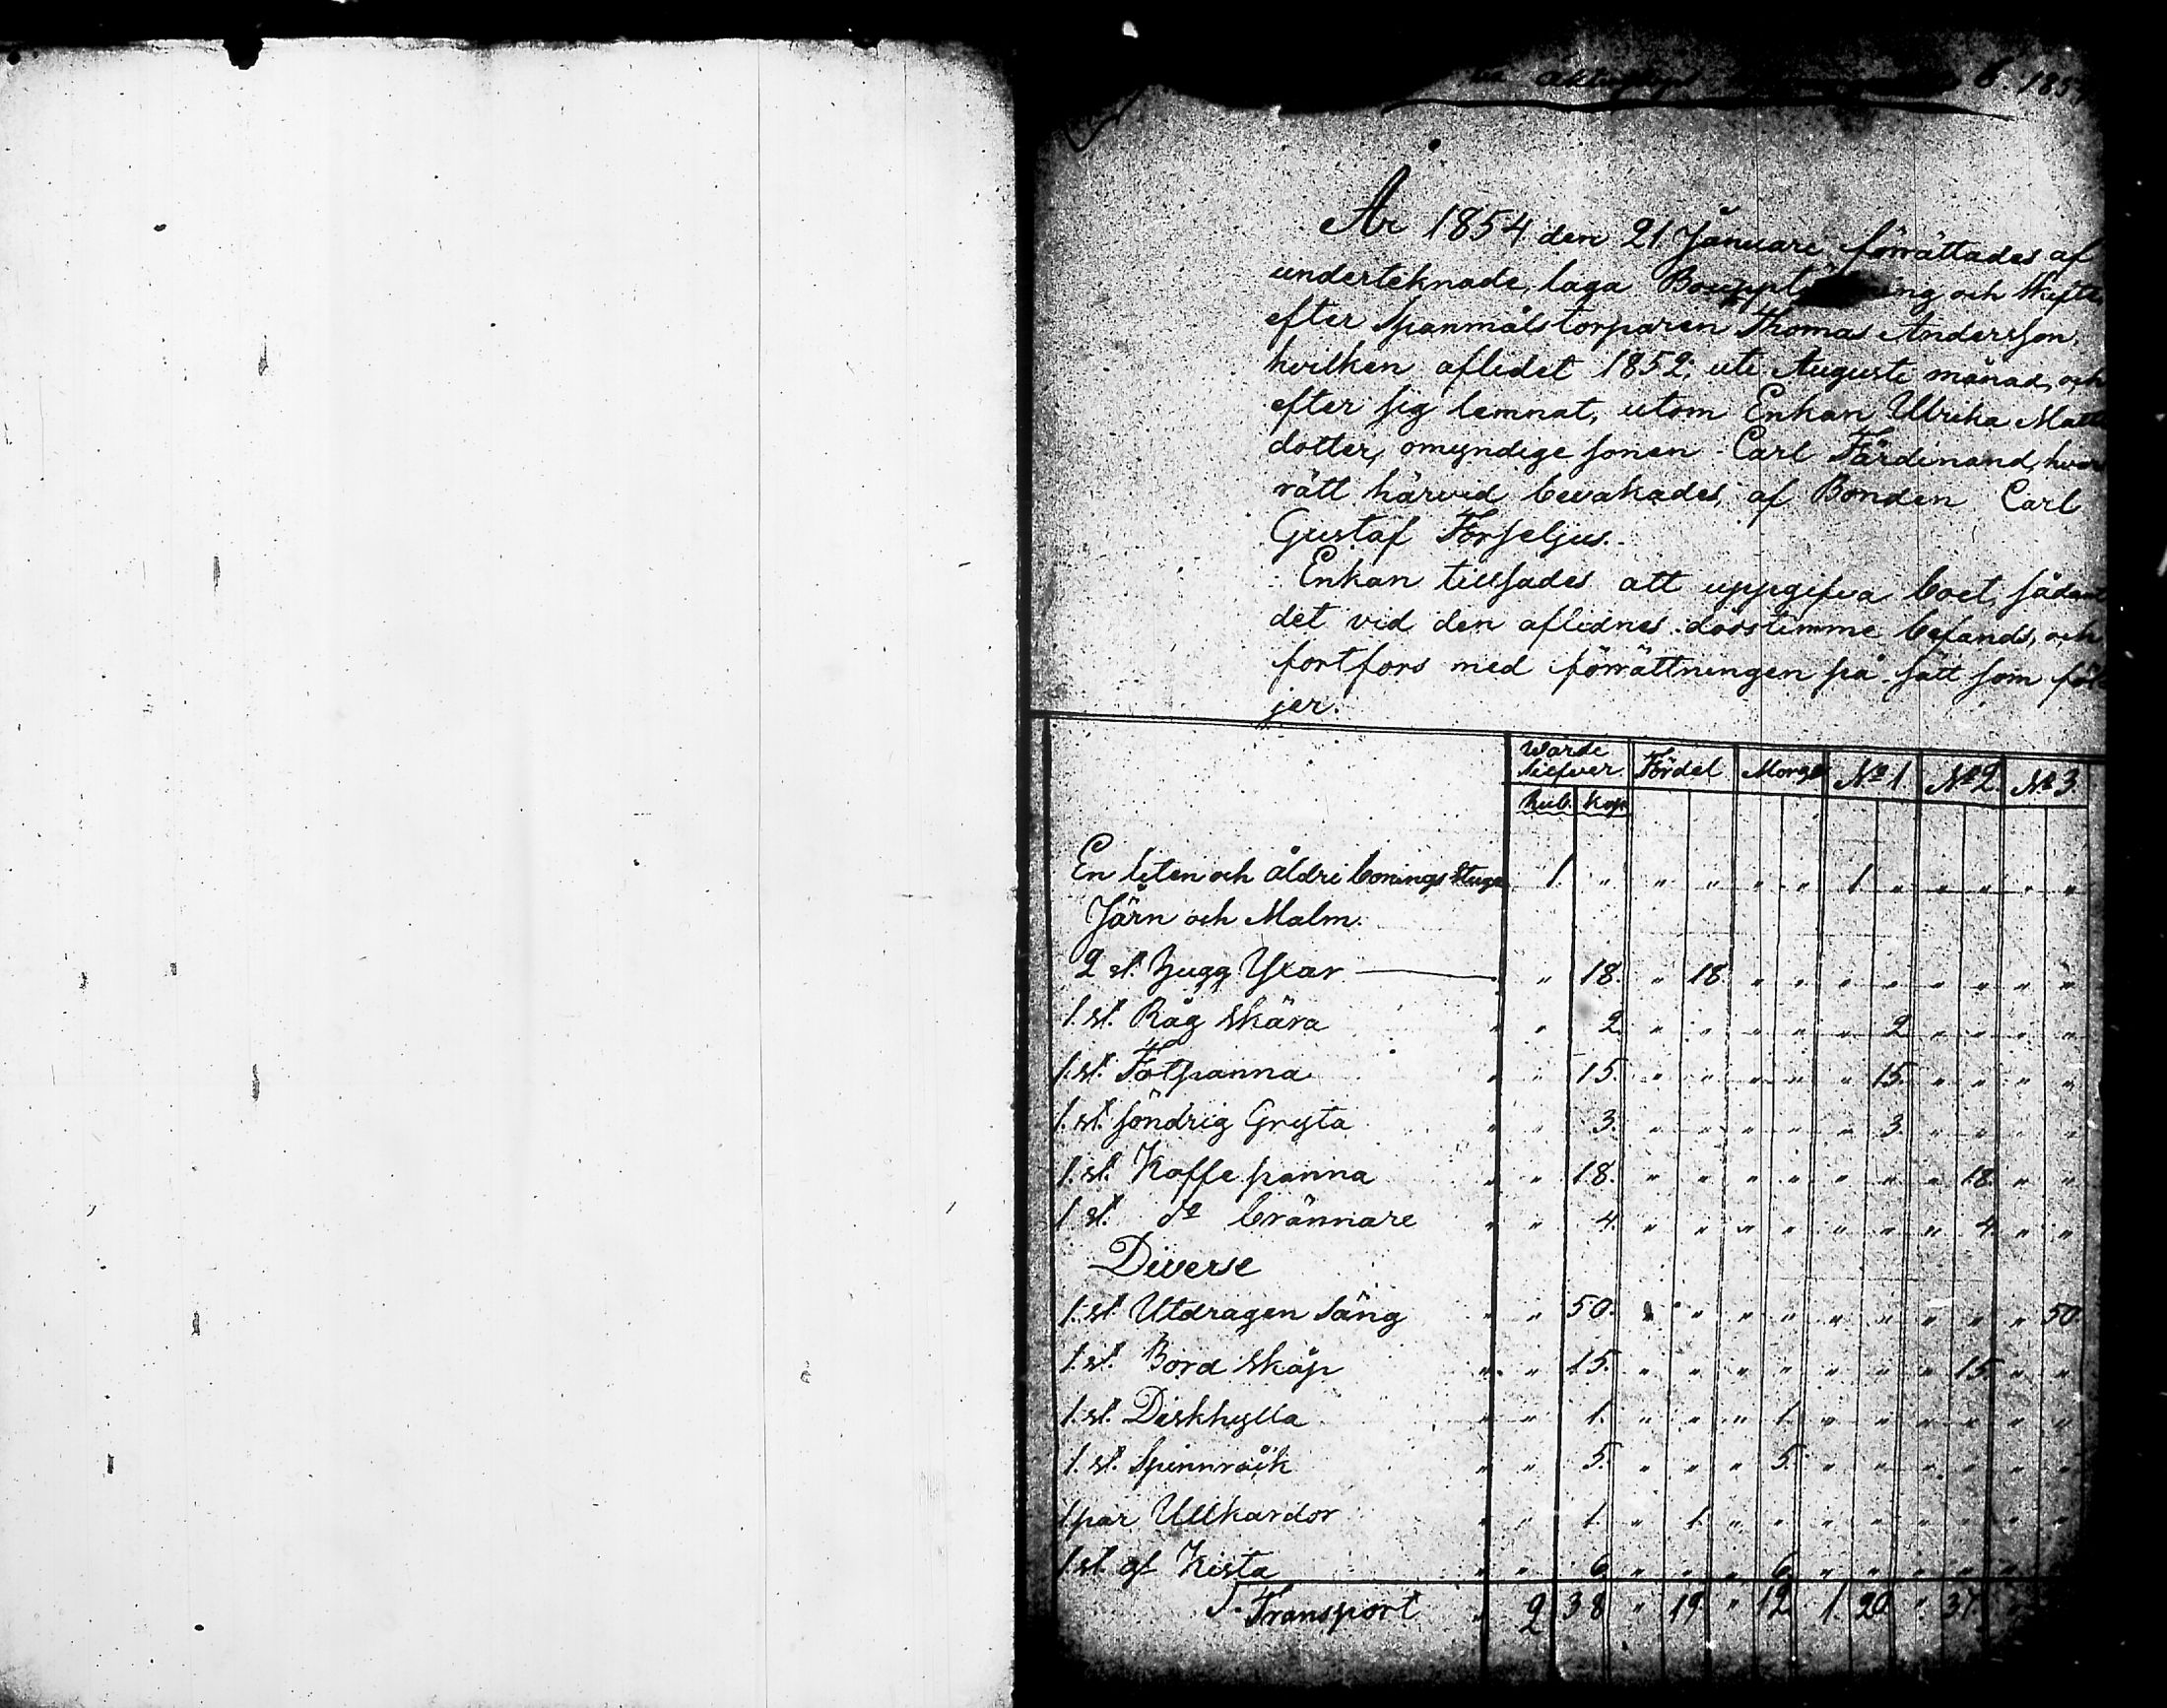 6. 185
År 1854 den 21 Januari, förrättades af
underteknade, laga och Skifte
efter Spanmålstorparen Thomas Andersson,
hvilken aflidet 1852, uti Augusti månad, och
efter sig lemnat, utom Enkan Ulrika Matts
dotter, omyndige sonen Carl Färdinand, hvars
rätt härvid bevakades, af Bonden Carl
Gustaf Forseljus.
Enkan tillsades att uppgifva boet, sådant
det vid den aflidnes dödstimme befands, och
fortfors med förrättningen på sätt som föl-
jer.
Wärde Silfver Fördel Morge No 1. No 2 No 3.
Rub. Kop
En liten och äldre bonings Stuga 1. " " " " " 1. " " " " "
Järn och Malm.
2 st. Hugg Yxar " 18. " 18. " " " " " " " "
1. st. Råg Skära " " 2. " " " " " 2. " " " "
1. st. Fotpanna " " 15. " " " " " 15. " " " "
1. st. söndrig Gryta " " 3. " " " " " 3. " " " "
1. st. Koffe panna " " 18. " " " " " " " 18. " "
1 st. do brännare " " 4. " " " " " " " 4. " "
Diverse
1. st. Utdragen Säng " " 50. " " " " " " " " " 50.
1. st. Bord Skåp " " 15. " " " " " " " 15. " "
1. st. Diskhylla " " 1. " " " 1. " " " " " "
1. st. Spinnråck " " 5. " " " 5. " " " " " "
1 par Ullkardor " " 1. " 1. " " " " " " " "
1. st. gl Kista " " 6. " " " 6. " " " " " "
S. Transport 2 38 " 19 " 12. 1. 20 " 37. "